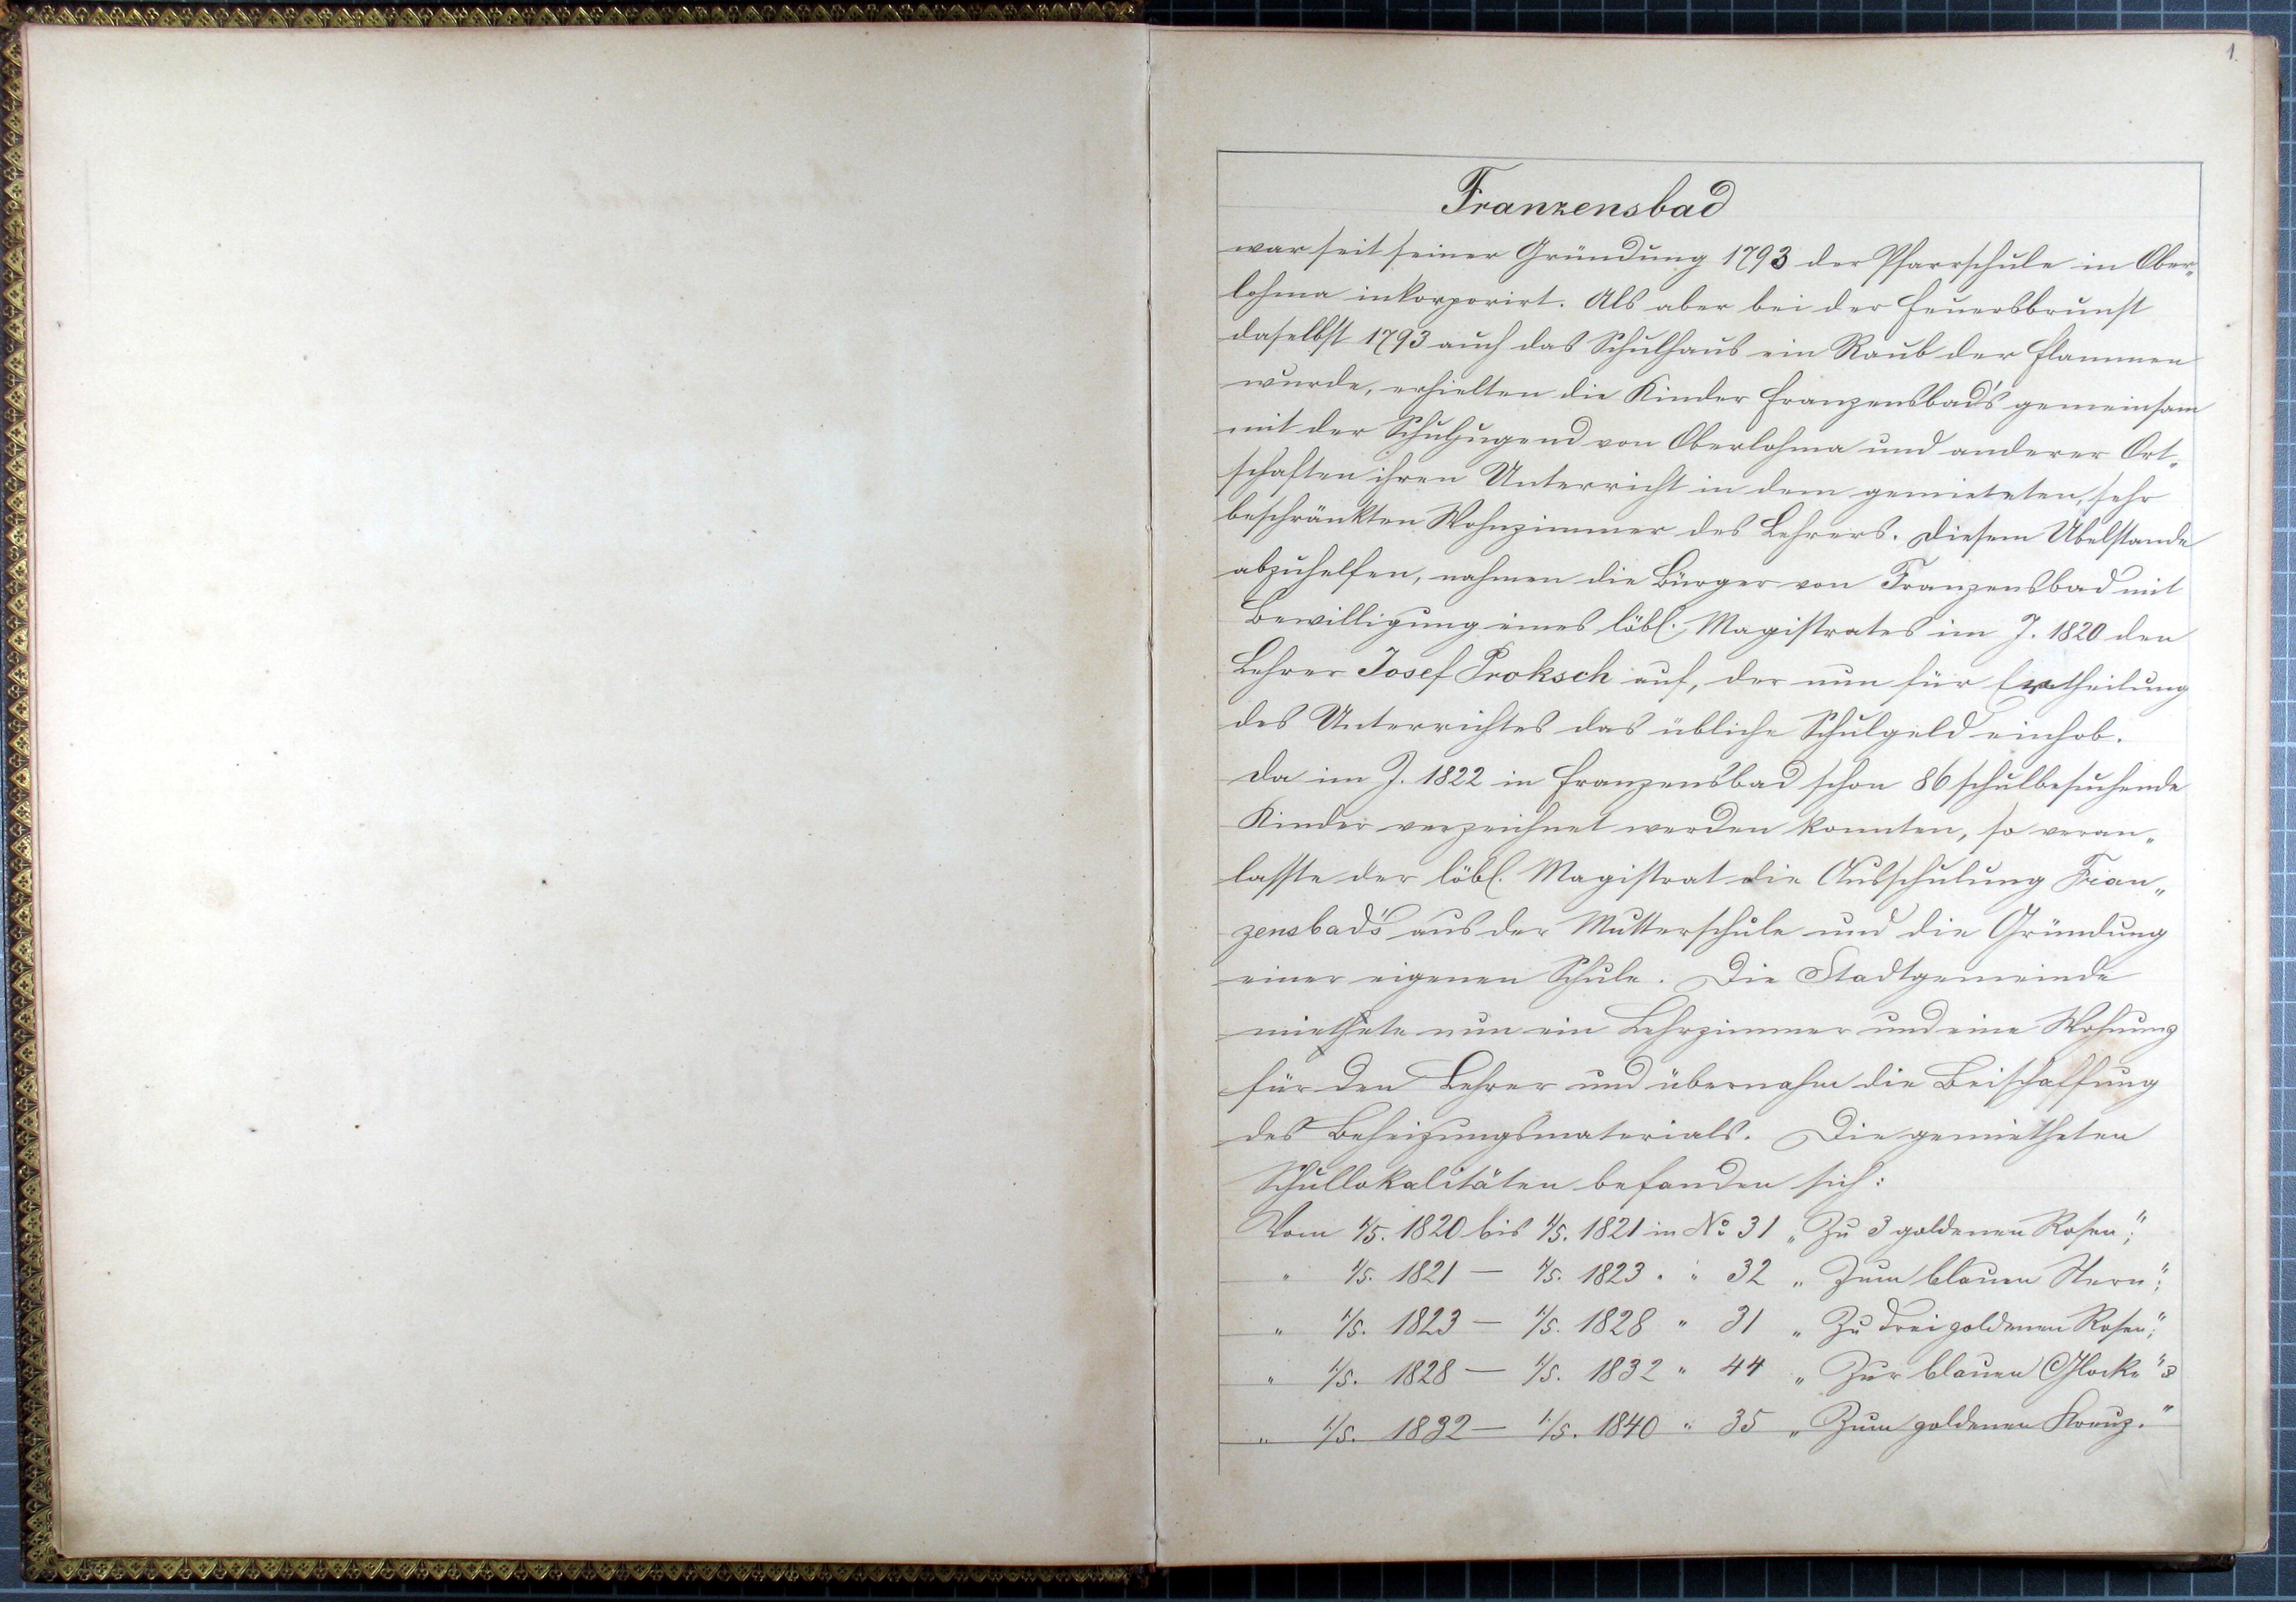 1.
Franzensbad
war seit seiner Gründung 1793 der Pfarrschule in Ober„
lohma inkorporirt. Als aber bei der Feuersbrunst
daselbst 1793 auch das Schulhaus ein Raub der Flammen
wurde, erhielten die Kinder Franzensbad's gemeinsam
mit der Schuljugend von Oberlohma und anderer Ort„
schaften ihren Unterricht in dem gemieteten, sehr
beschränkten Wohnzimmer des Lehrers. Diesem Übelstande
abzuhelfen, nahmen die Bürger von Franzensbad mit
Bewilligung eines löbl. Magistrates im J. 1820 den
Lehrer Josef Proksch auf, der nun für Ertheilung
des Unterrichtes das übliche Schulgeld einhob.
Da im J. 1822 in Franzensbad schon 86 schulbesuchende
Kinder verzeichnet werden konnten, so veran„
lasste der löbl. Magistrat die Ausschulung Fran„
zensbad's aus der Mutterschule und die Gründung
einer eigenen Schule. Die Stadtgemeinde
miethete nun ein Lehrzimmer und eine Wohnung
für den Lehrer und übernahm die Beischaffung
des Beheizungsmaterials. Die gemietheten
Schullokalitäten befanden sich:
Vom 1/5. 1820 bis 1/5. 1821 in No 31 „Zu 3 goldenen Rosen";
" 1/5. 1821 — 1/5. 1823 " " 32 „Zum blauen Stern";
" 1/5. 1823 — 1/5. 1828 " 31 „Zu drei goldenen Rosen";
" 1/5. 1828 — 1/5. 1832 " 44 „Zur blauen Glocke";
" 1/5. 1832 — 1/5. 1840 " 35 „Zum goldenen Kreuz."